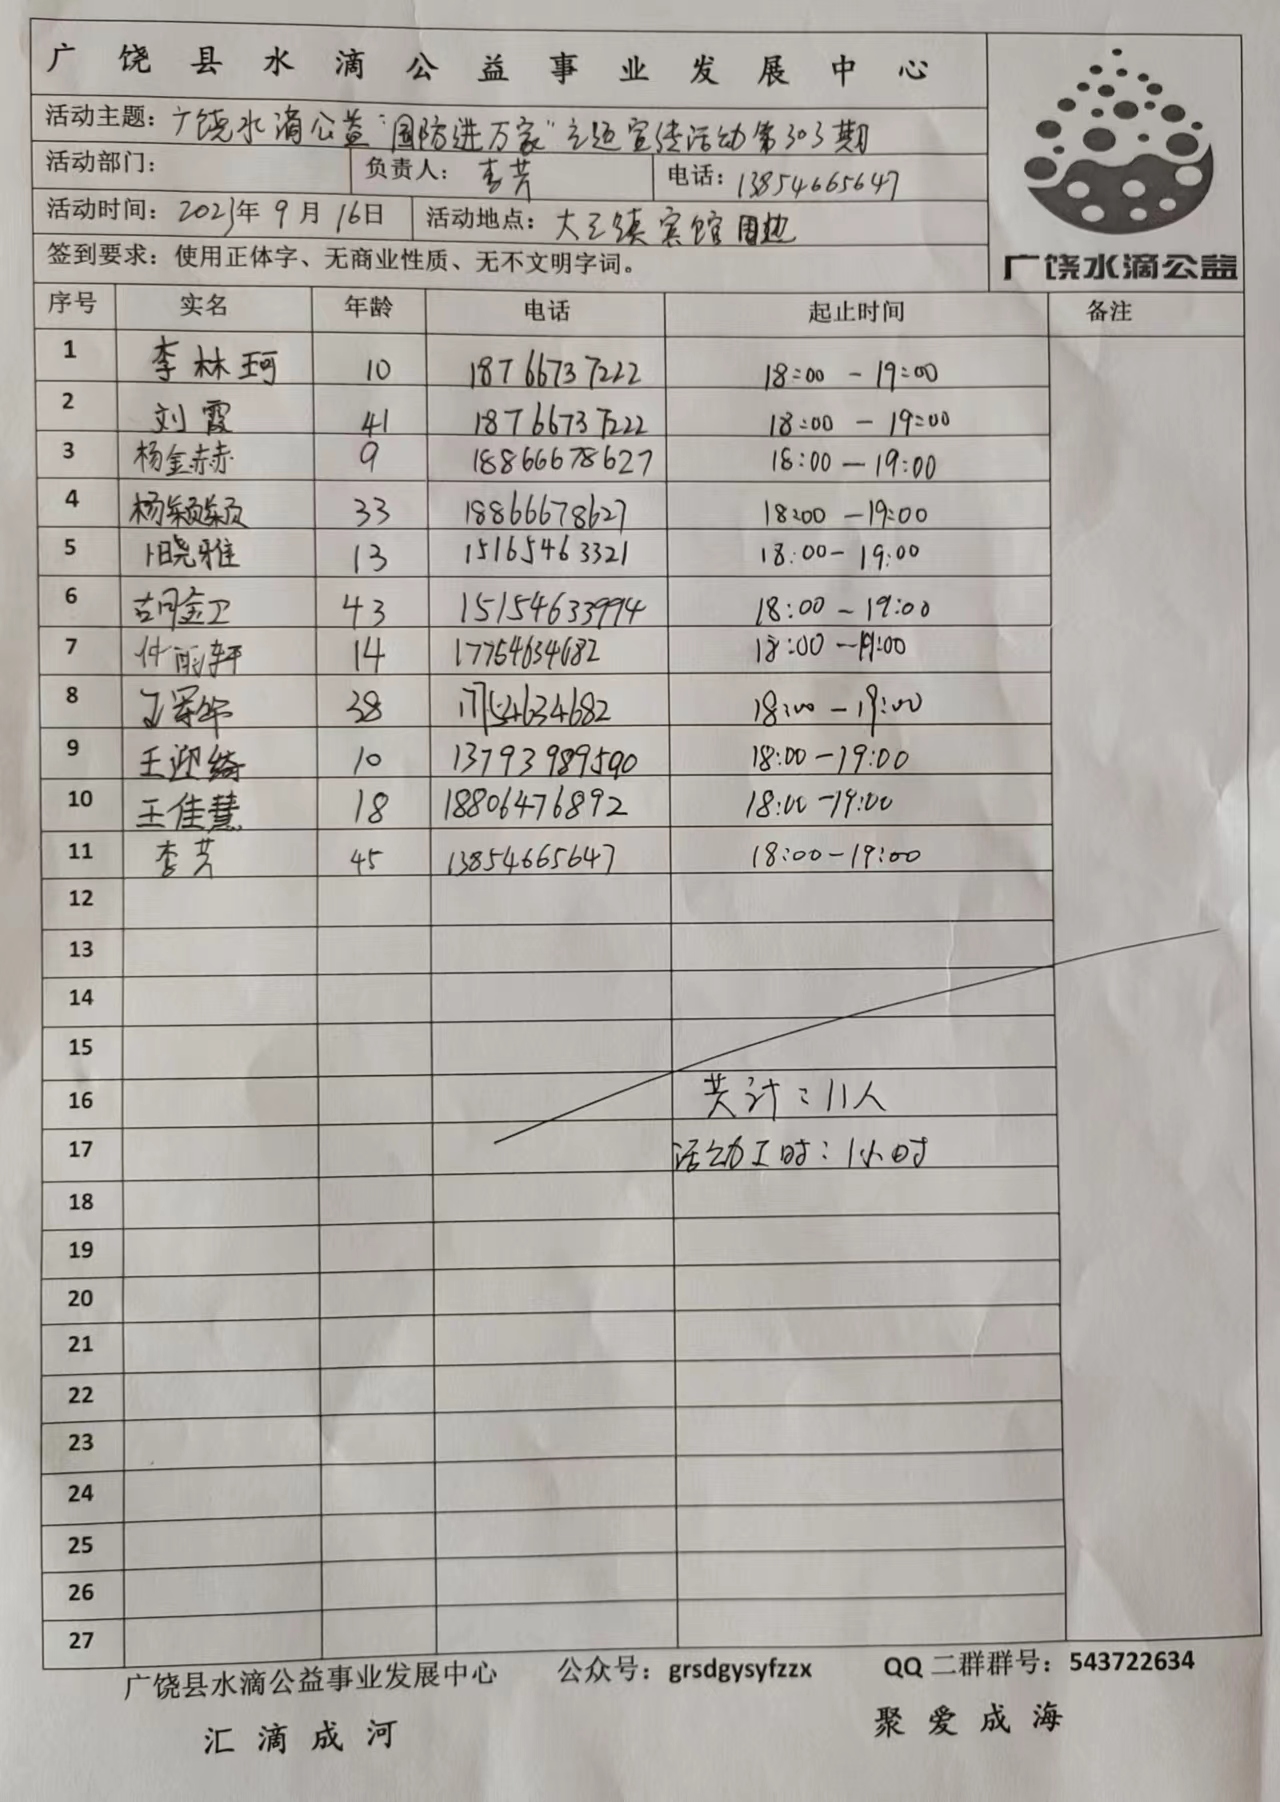 广饶县水滴公益事业发展中心
活动主题：广饶水滴公益"国防进万家"主题宣传活动第303期
活动部门： 负责人：李芳 电话：13854665647
活动时间：2023年9月16日 活动地点：大王镇宾馆周边
签到要求：使用正体字、无商业性质、无不文明字词。
广饶水滴公益
序号 实名 年龄 电话 起止时间 备注
1 李林珂 10 18766737222 18:00-19:00
2 刘霞 41 18766737222 18:00-19:00
3 杨金赫 9 18866678627 18:00-19:00
4 杨颖颖 33 18866678627 18:00-19:00
5 晓雅 13 15165463321 18:00-19:00
6 胡金卫 43 15154633994 18:00-19:00
7 轩 14 17754634682 18:00-19:00
8 38 17754634682 18:00-19:00
9 王迎绮 10 13793989590 18:00-19:00
10 王佳慧 18 18806476892 18:00-19:00
11 李芳 45 13854665647 18:00-19:00
12
13
14
15
16 共计：11人
17 活动工时：1小时
18
19
20
21
22
23
24
25
26
27
广饶县水滴公益事业发展中心 公众号：grsdgysyfzzx QQ二群群号：543722634
汇滴成河 聚爱成海